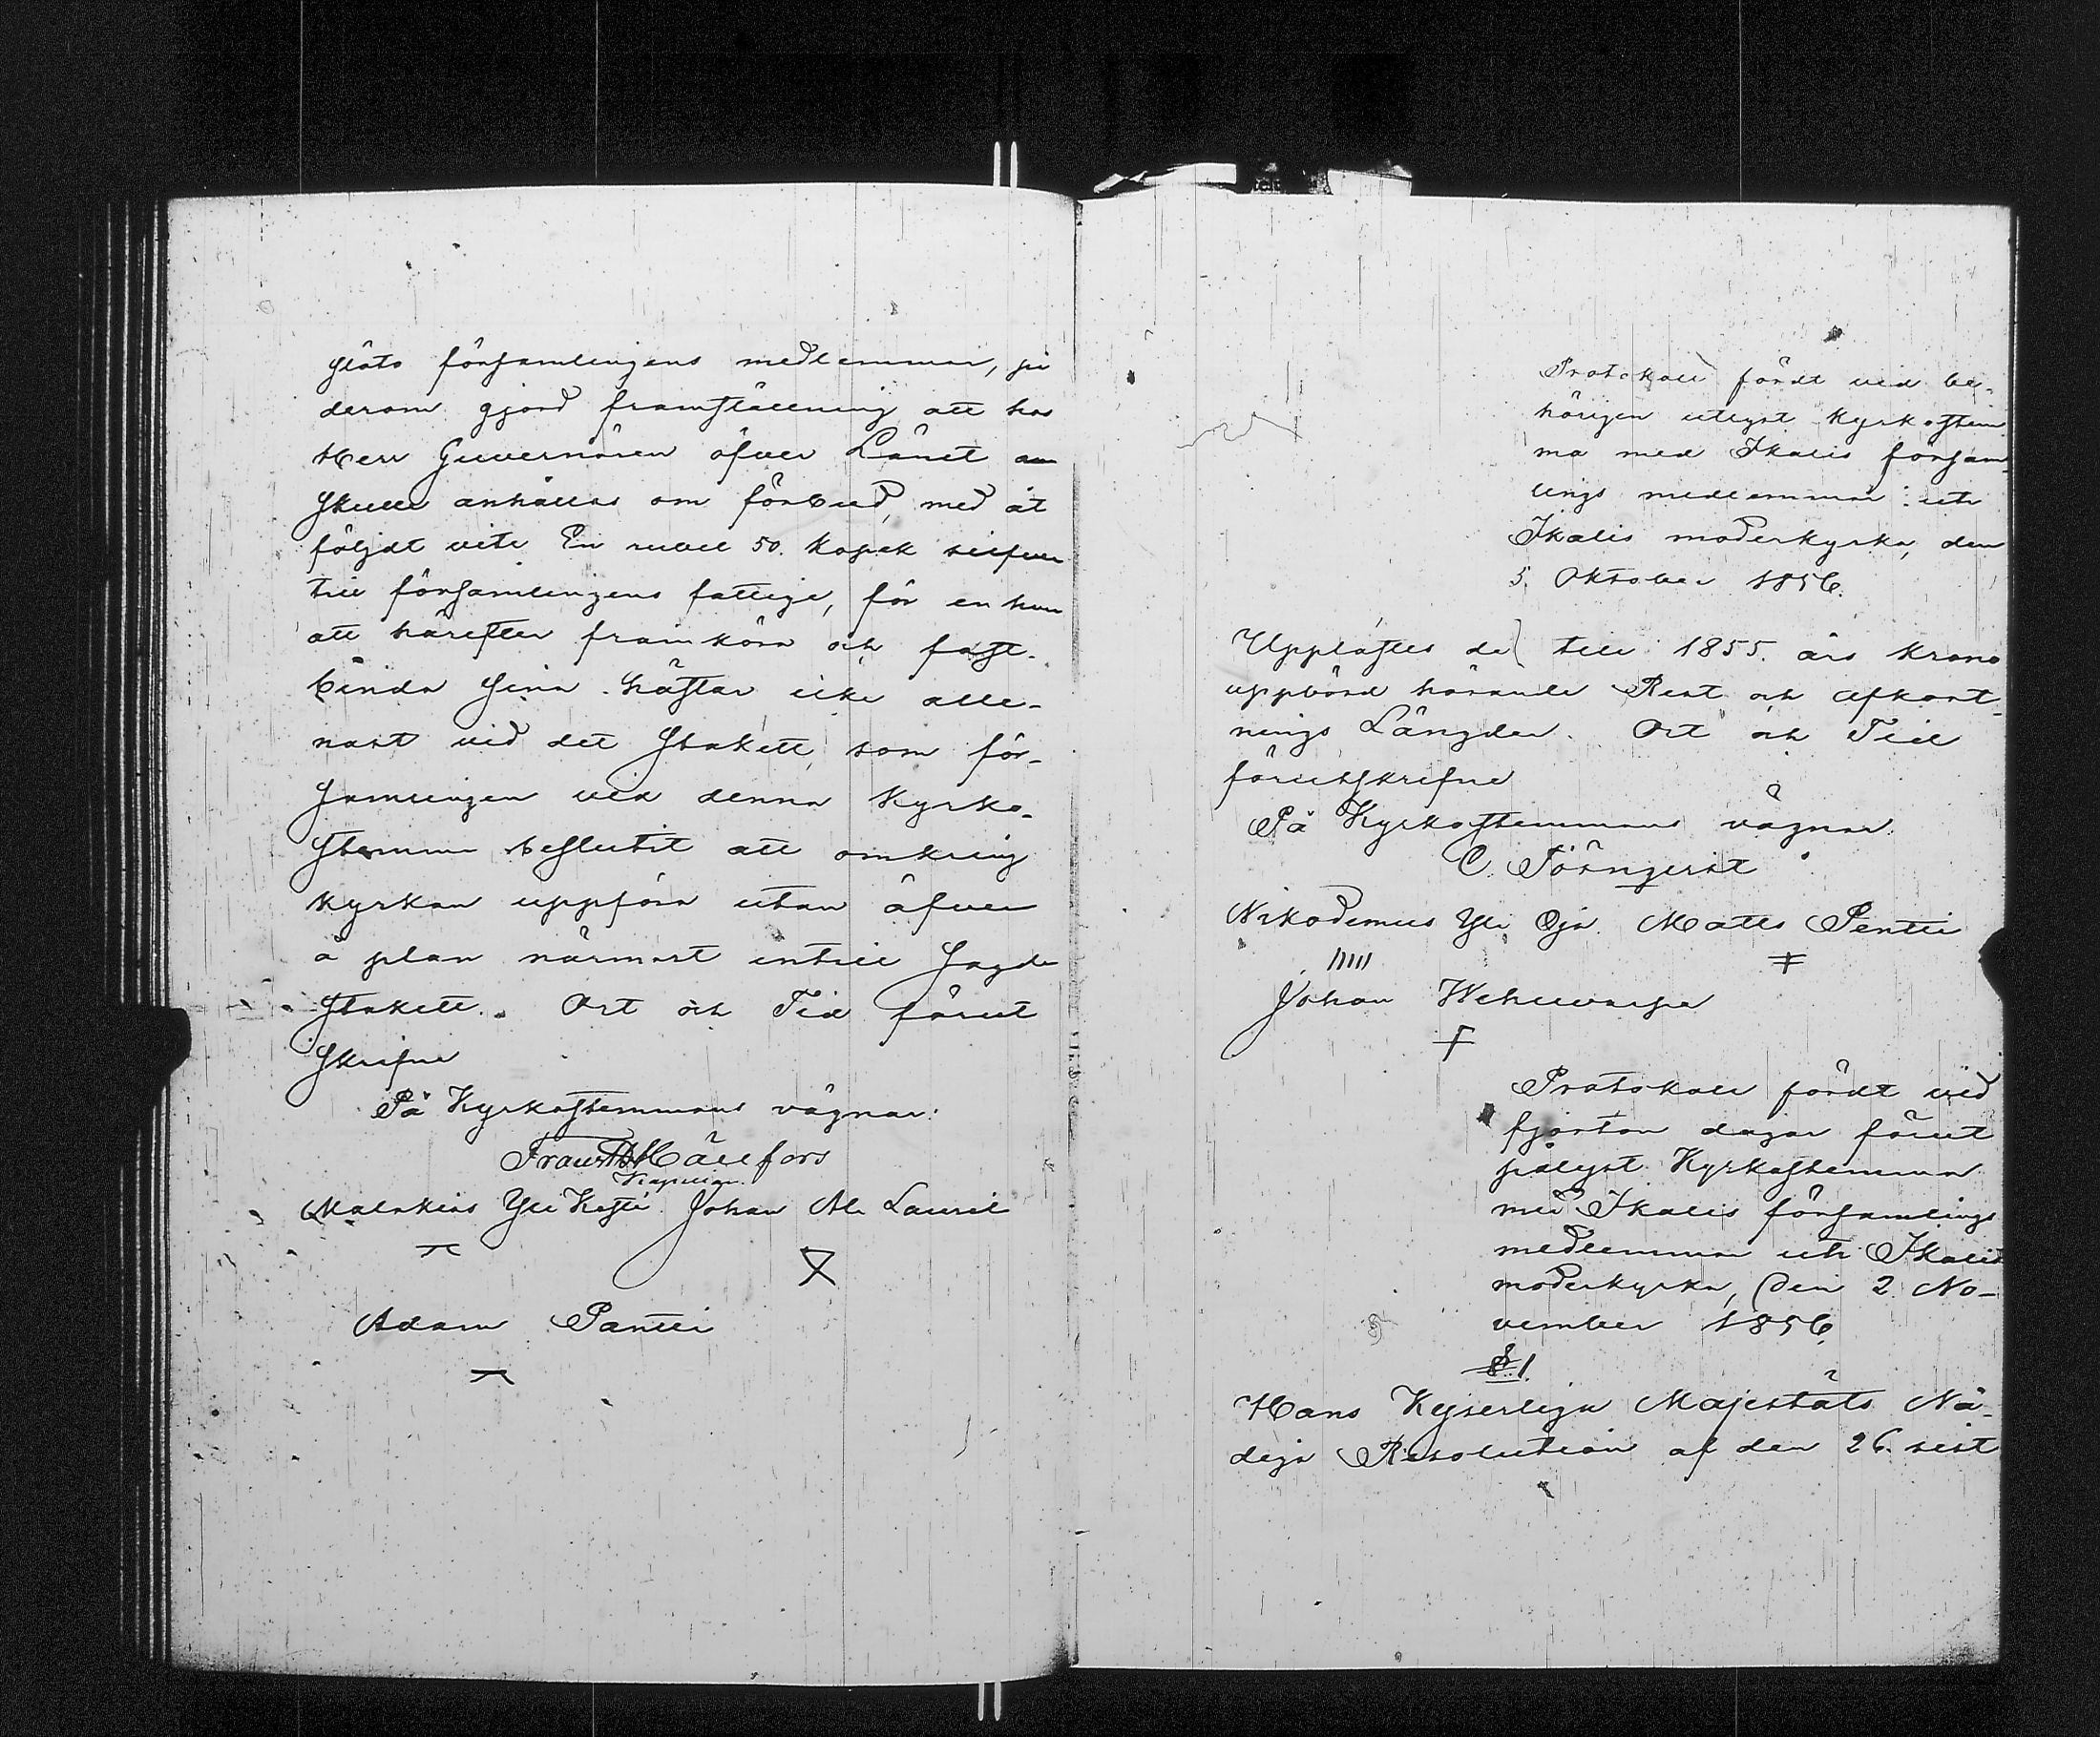 slöto församlingens medlemmar, på
derom gjord framställning att hos
Herr Guvernören öfver Länet an
skulle anhållas om förbud, med åt
följdt vite En rubel 50. kopek silfver
till församlingens fattige, för en hvar
att härefter framköra och fast-
binda sina hästar icke alle-
nast vid det stakett, som för-
samlingen vid denna Kyrko-
stemma beslutit att omkring
kyrkan uppföra utan äfven
å plan närmast intill sagde
stakett. Ort och Tid förut
skrifne
På Kyrkostemmans vägnar:
Frans Hällfors
Kapellan
Malakias Yli Kesti Johan Ala Lauril
Adam Pantti
Protokoll fördt vid be-
hörigen utlyst Kyrkostem
ma med Ikalis försam-
lings medlemmar uti
Ikalis moderkyrka, den
5. Oktober 1856.
Upplästes de till 1855. års krono
uppbörd hörande Rest och afkort-
nings Längder. Ort och Tid
förutskrifne
På Kyrkostemmans vägnar:
C. Törnqvist
Nikodemus Yli Öja. Matts Pentti
Johan
Protokoll fördt vid
fjorton dagar förut
pålyst Kyrkostemma
med Ikalis församlings
medlemmar uti Ikalis
moderkyrka, den 2 No-
vember 1856
§ 1.
Hans Kejserliga Majestäts Nå-
diga Resolution af den 26. sist